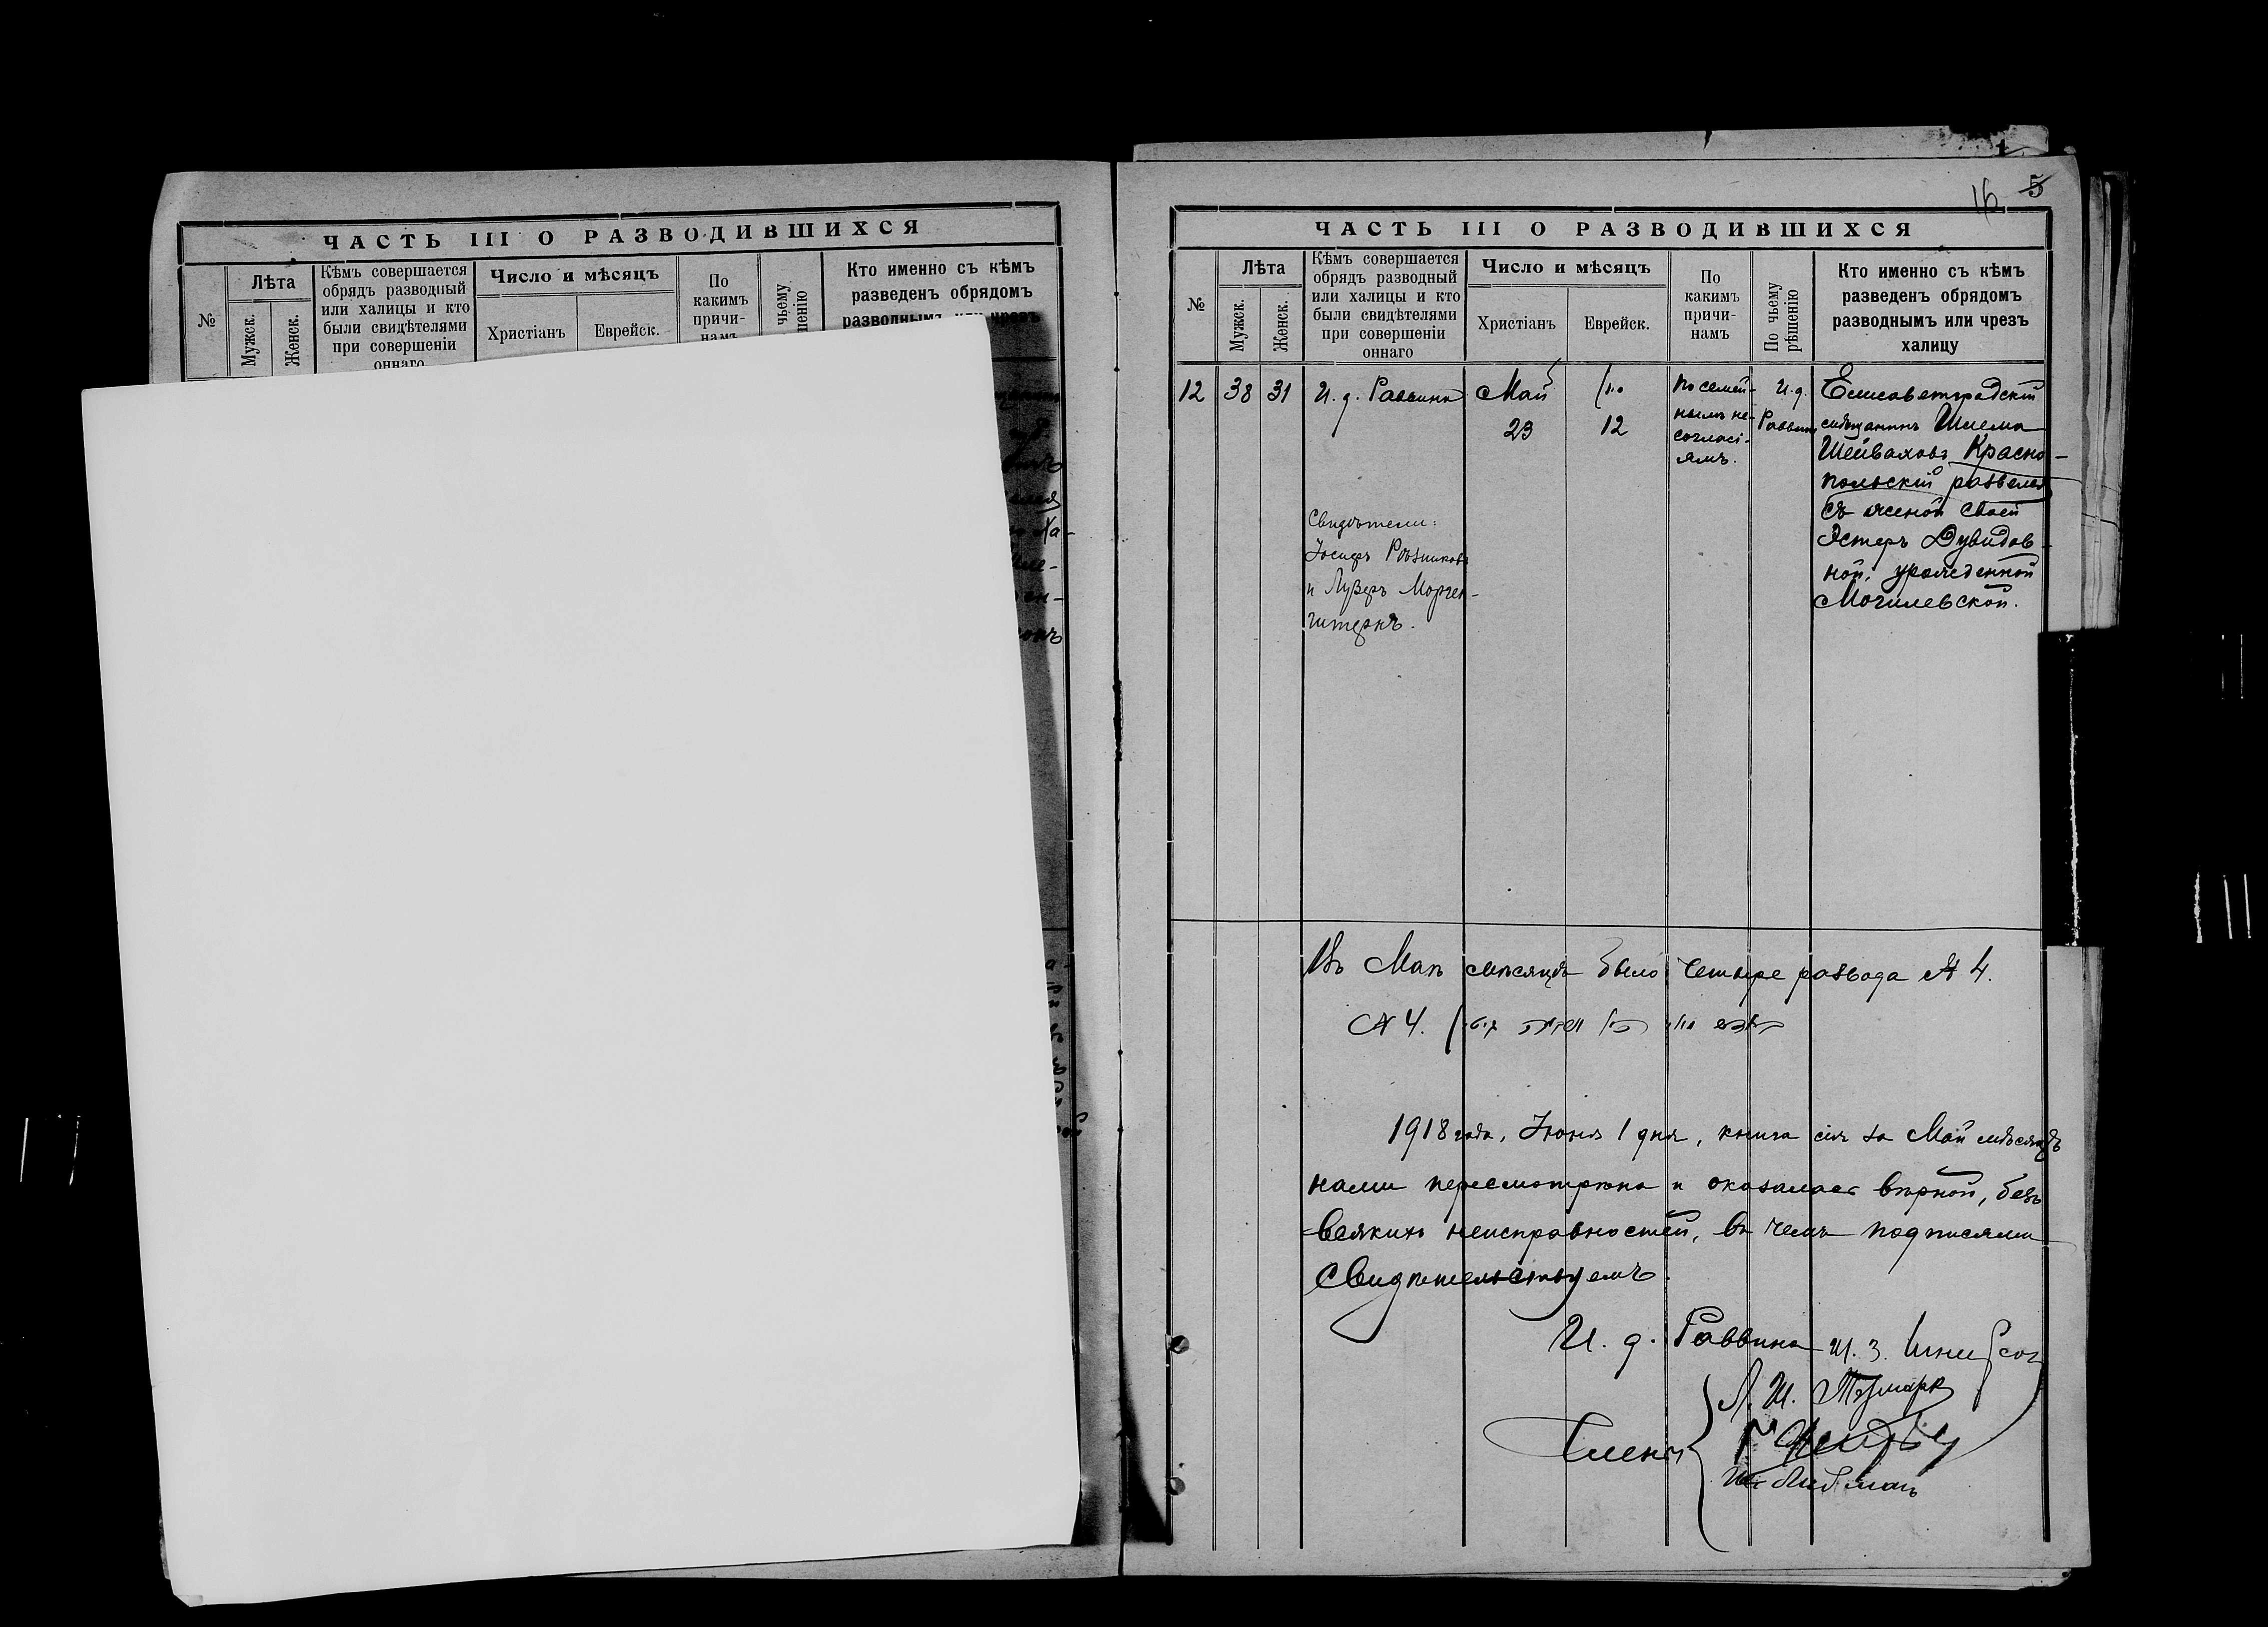 ЧАСТЬ III О РАЗВОДИВШИХСЯ
№
Лѣта
Мужск.
Женск.
Кѣмъ совершается
обрядъ разводный
или халицы и кто
были свидѣтелями
при совершеніи
оннаго
Число и мѣсяцъ
Христіанъ
Еврейск.
По
какимъ
причи-
намъ
чьему
Кто именно съ кѣмъ
разведенъ обрядомъ
разводнымъ
16 5
ЧАСТЬ III О РАЗВОДИВШИХСЯ
№
Лѣта
Мужск.
Женск.
Кѣмъ совершается
обрядъ разводный
или халицы и кто
были свидѣтелями
при совершеніи
оннаго
Число и мѣсяцъ
Христіанъ
Еврейск.
По
какимъ
причи-
намъ
По чьему
рѣшенію
Кто именно съ кѣмъ
разведенъ обрядомъ
разводнымъ или чрезъ
халицу
12
38
31
И. д. Раввина
Свидѣтели:
Іосифъ Рѣзниковъ
и ЛузеръМорген-
штернъ.
Май
23
סיון
12
По семей-
нымъ не-
согласі-
ямъ.
И. д.
Раввина
Елисаветградскій
мѣщанинъ Шлема
Шейваховъ Красно-
польскій развелся
съ женой своей
Эстеръ Дувидов-
ной, урожденной
Могилевской.
Въ Маѣ мѣсяцѣ было четыре развода № 4.
№ 4.
1918 года, Іюня 1 дня, книга сія за Май мѣсяцъ
нами пересмотрѣна и оказалась вѣрной, безъ
всякихъ неисправностей, въ чемъ подписями
свидѣтельствуемъ.
И. д. Раввина
Члены
Либманъ